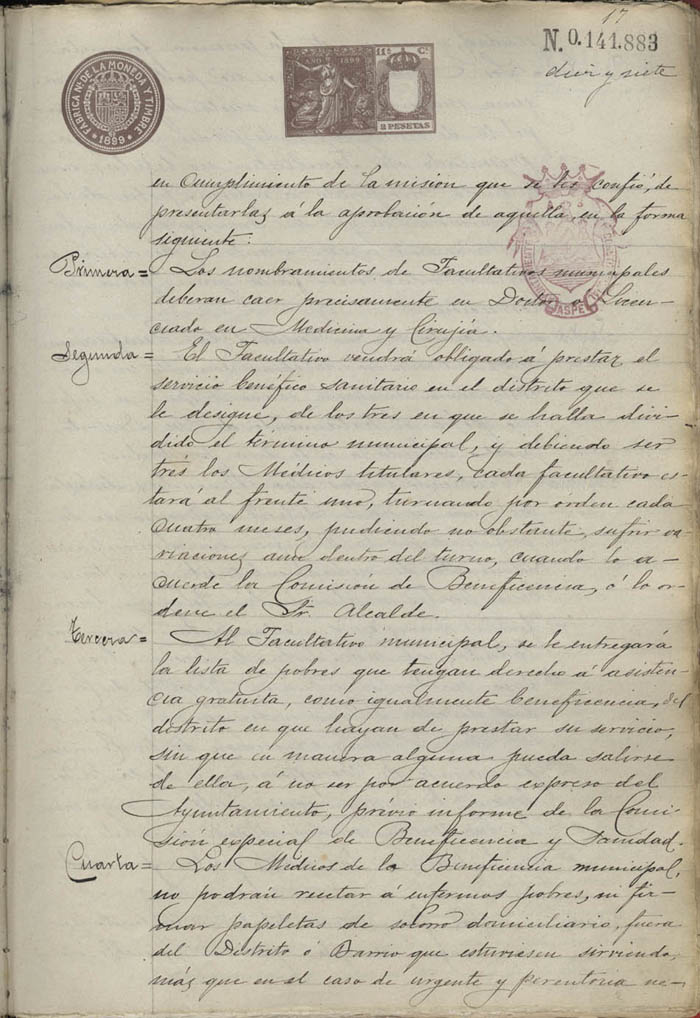 17
N. 0.141.883
diez y siete
FABRICA NL DE LA MONEDA Y TIMBRE
1899
AÑO 1899
11ª Cª
2 PESETAS
CASPE
en cumplimiento de la misión que se les confió, de
presentarlas á la aprobación de aquella, en la forma
siguiente:
Primera = Los nombramientos de Facultativos municipales
deberan caer precisamente en Doctor o Licen-
ciado en Medicina y Cirujía.
Segunda = El Facultativo vendrá obligado á prestar el
servicio benéfico sanitario en el distrito que se
le designe, de los tres en que se halla divi-
dido el término municipal, y debiendo ser
trés los Médicos titulares, cada facultativo es-
tará al frente uno, turnando por órden cada
cuatro meses, pudiendo no obstante, sufrir va-
riaciones aun dentro del turno, cuando lo a-
cuerde la Comisión de Beneficencia, ó lo or-
dene el Sr. Alcalde.
Tercera = Al Facultativo municipal, se le entregará
la lista de pobres que tengan derecho á asisten-
cia gratuita, como igualmente beneficencia, del
distrito en que hayan de prestar su servicio,
sin que en manera alguna pueda salirse
de ella, á no ser por acuerdo expreso del
Ayuntamiento, prévio informe de la Comi-
sión especial de Beneficencia y Sanidad.
Cuarta = Los Medicos de la Beneficencia municipal,
no podrán recetar á enfermos pobres, ni fir-
mar papeletas de socorro domiciliario, fuera
del Distrito ó Barrio que estuviesen sirviendo,
más que en el caso de urgente y perentoria ne-